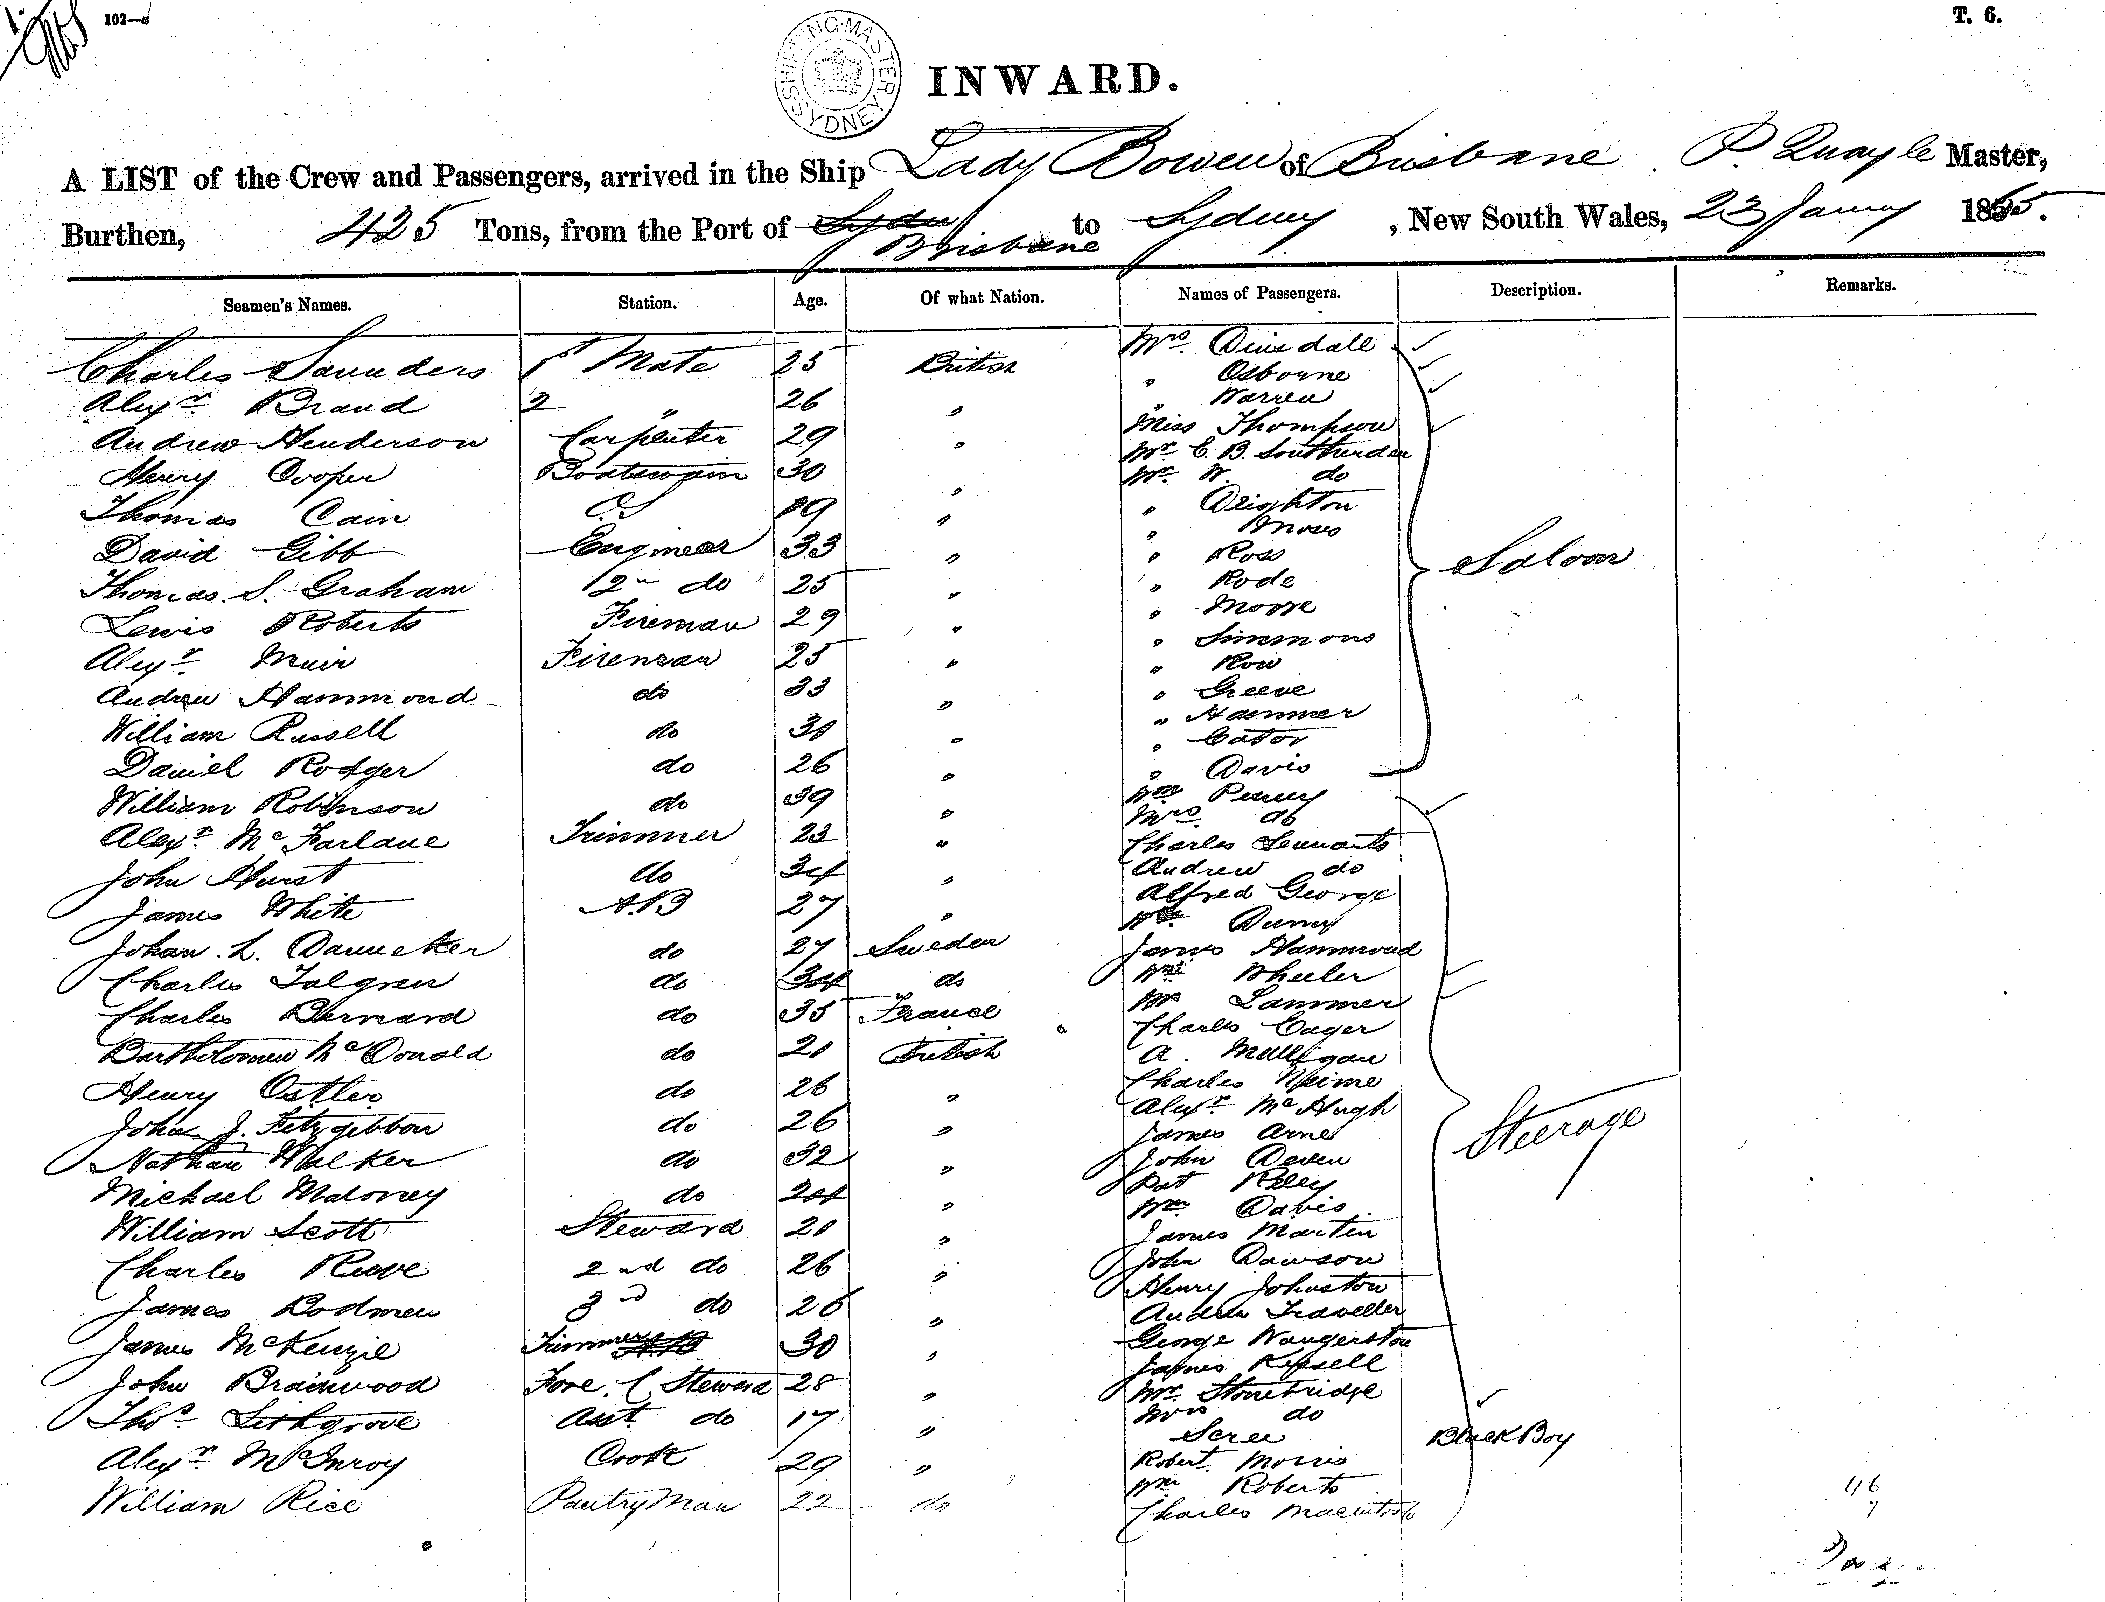 102—
T. 6.
SHIPPING MASTER SYDNEY
INWARD.
A LIST of the Crew and Passengers, arrived in the Ship Lady Bowen of Brisbane P. Quayle Master,
Burthen, 425 Tons, from the Port of Brisbane to Sydney, New South Wales, 23 January 1865.
Seamen's Names. Station. Age. Of what Nation. Names of Passengers. Description. Remarks.
Charles Saunders 1st Mate 25 British
Alexr Brand 2 " 26 "
Andrew Henderson Carpenter 29 "
Henry Cooper Boatswain 30 "
Thomas Cain OS 19 "
David Gibb Engineer 33 "
Thomas S. Graham 2nd do 25 "
Lewis Roberts Fireman 29 "
Alexr Muir Fireman 25 "
Andrew Hammond do 33 "
William Russell do "
Daniel Rodger do 26 "
William Robinson do 39 "
Alexr McFarlane Trimmer 23 "
John Hurst do 34 "
James White A.B 27 "
Johan. L. Dannecker do 27 Sweden
Charles Talgren do 34 do
Charles Bernard do 35 France
Bartholomew McDonald do 21 British
Henry Ostler do 26 "
John J. Fitzgibbon do 26 "
Nathan Walker do 32 "
Michael Maloney do 24 "
William Scott Steward 21 "
Charles Reeve 2nd do 26 "
James Bodmen 3rd do 26 "
James McKenzie Trimmer 30 "
John Brainwood Fore. C. Steward 28 "
Thos Lethgrove Asst do 17 "
Alexr McInroy Cook 29 "
William Rice Pantry Man 22 do
Mrs. Dinsdale
" Osborne
" Warren
Miss Thompson
Mr E. B. Southerden
Mr. W. do
" Deighton
" Moses
" Ross
" Rode
" Moore
" Simmons
" Row
" Greeve
" Hammer
" Cator
" Davis
Saloon
Wm Penny
Mrs do
Charles Tennants
Andrew do
Alfred George
Wm Dunn
James Hammond
Wm Wheeler
Mr Lammer
Charles Eager
A. Mulligan
Charles Prime
Alexr McHugh
James Arne
John Deven
Pat Riley
Wm Davis
James Martin
John Dawson
Henry Johnston
Andrew Traveller
George Waugerston
James Kussell
Mr. Stonebridge
Mrs do
Black Boy
Robert Morris
Wm Roberts
Charles Macintosh
Steerage
46
7